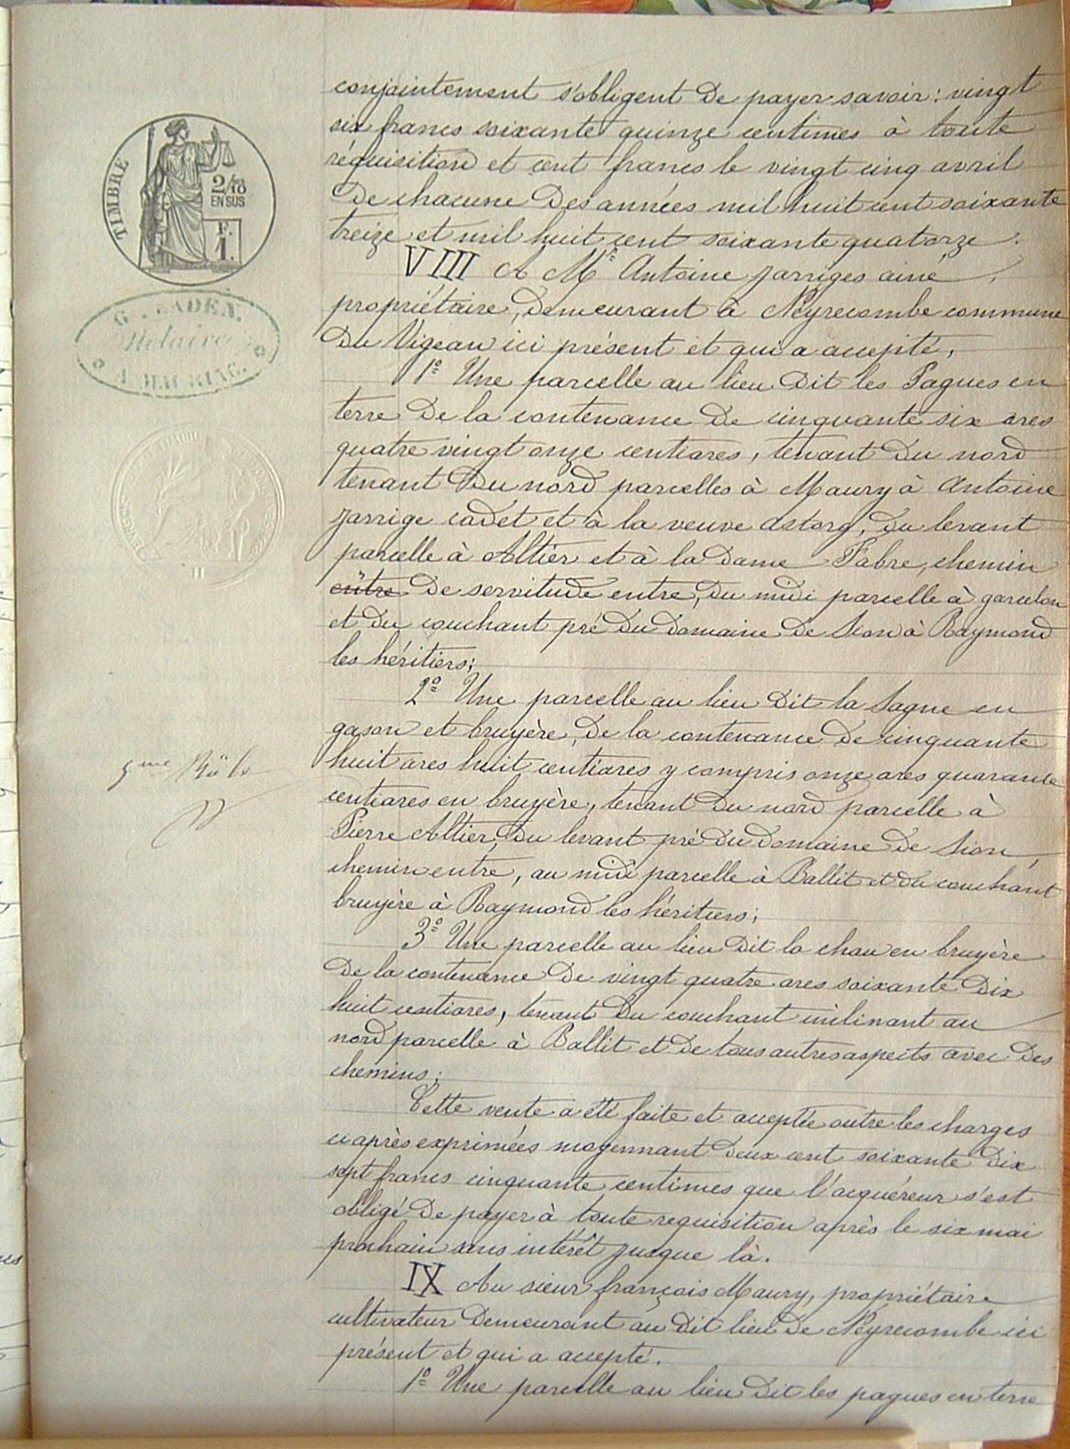 TIMBRE
2/10
EN SUS
F.
1.
G. BADEN.
Notaire
A MAURIAC.
5me Rôle
conjointement s'obligent de payer savoir : vingt
six francs soixante quinze centimes à toute
réquisition et cent francs le vingt cinq avril
de chacune des années mil huit cent soixante
treize et mil huit cent soixante quatorze.
VIII A Mr Antoine Jarriges ainé,
propriétaire, demeurant à Neyrecombe commune
du Vigean ici présent et qui a accepté,
1o Une parcelle au lieu dit les Pagues en
terre de la contenance de cinquante six ares
quatre vingt onze centiares, tenant du nord
tenant du nord parcelles à Maury à Antoine
Jarrige cadet et à la veuve Astorg, du levant
parcelle à Altier et à la dame Fabre, chemin
entre de servitude entre, du midi parcelle à garcelon
et du couchant pré du domaine de Sion à Raymond
les héritiers;
2o Une parcelle au lieu dit la Sagne en
gason et bruyère, de la contenance de cinquante
huit ares huit centiares y compris onze ares quarante
centiares en bruyère, tenant du nord parcelle à
Pierre Altier, du levant pré du domaine de Sion,
chemin entre, au midi parcelle à Ballit et du couchant
bruyère à Raymond les héritiers;
3o Une parcelle au lieu dit la chau en bruyère
de la contenance de vingt quatre ares soixante dix
huit centiares, tenant du couchant inclinant au
nord parcelle à Ballit et de tous autres aspects avec des
chemins;
Cette vente a été faite et acceptée outre les charges
ci après exprimées moyennant deux cent soixante dix
sept francs cinquante centimes que l'acquéreur s'est
obligé de payer à toute requisition après le six mai
prochain sans intérêt jusque là.
IX Au sieur françois Maury, propriétaire
cultivateur demeurant au dit lieu de Neyrecombe ici
présent et qui a accepté.
1o Une parcelle au lieu dit les pagues en terre